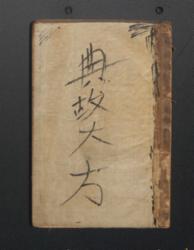 典故大方